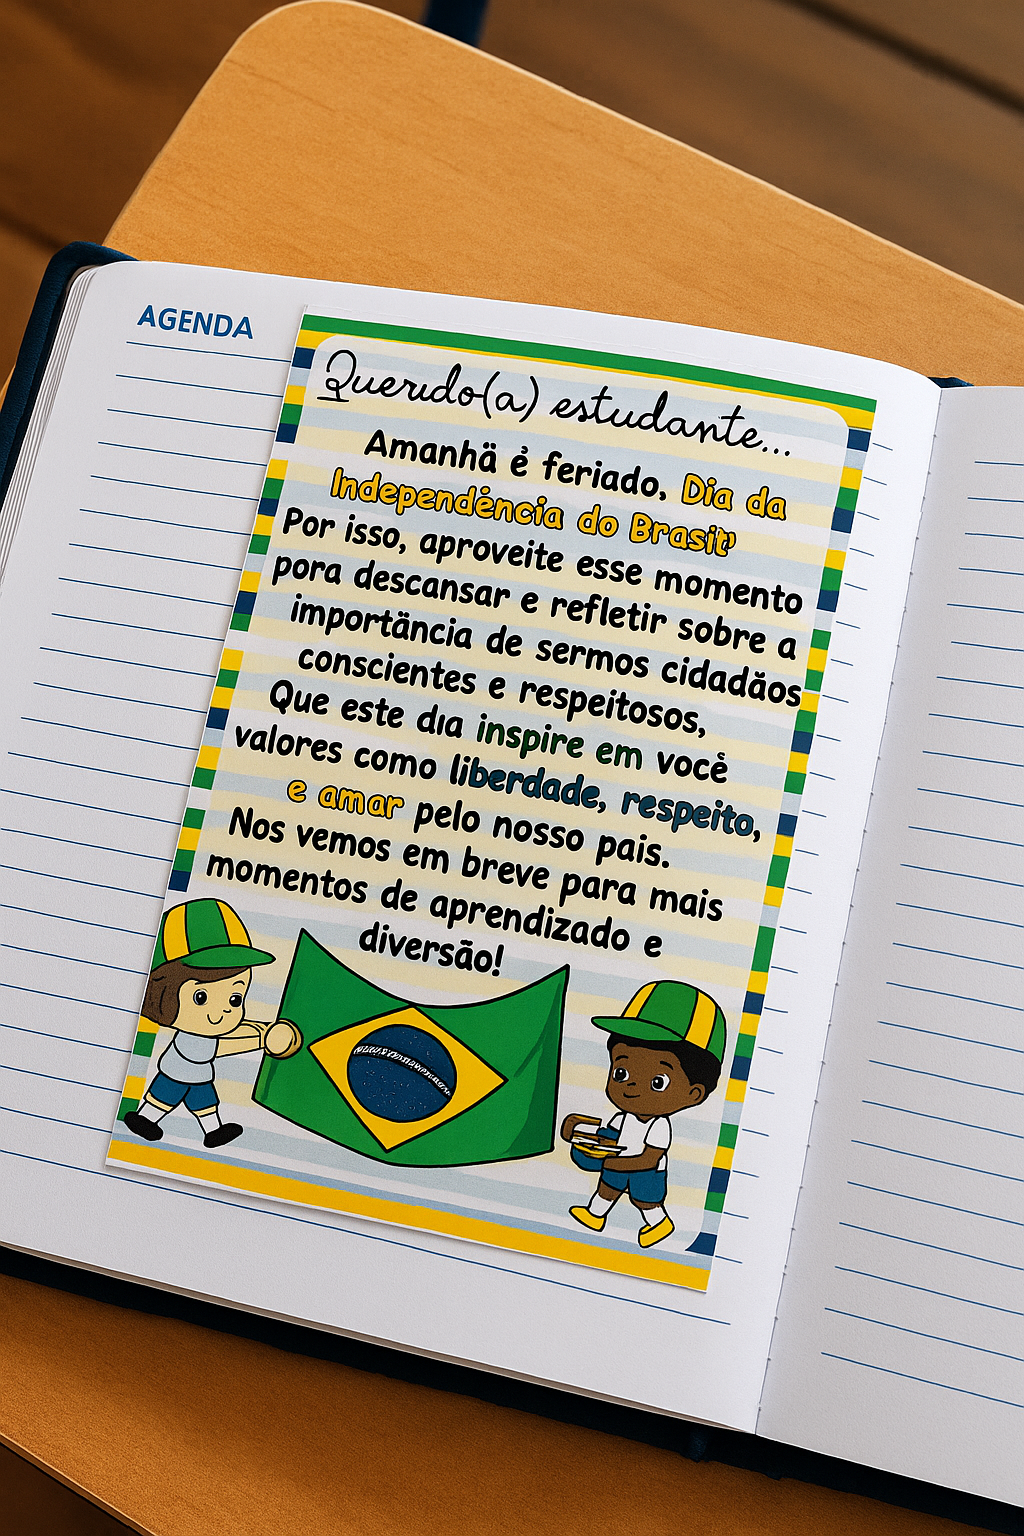 AGENDA
Querido(a) estudante...
Amanhä é feriado, Dia da
Independência do Brasil!
Por isso, aproveite esse momento
pora descansar e refletir sobre a
importäncia de sermos cidadãos
conscientes e respeitosos,
Que este dıa inspire em você
valores como liberdade, respeito,
e amar pelo nosso pais.
Nos vemos em breve para mais
momentos de aprendizado e
diversão!